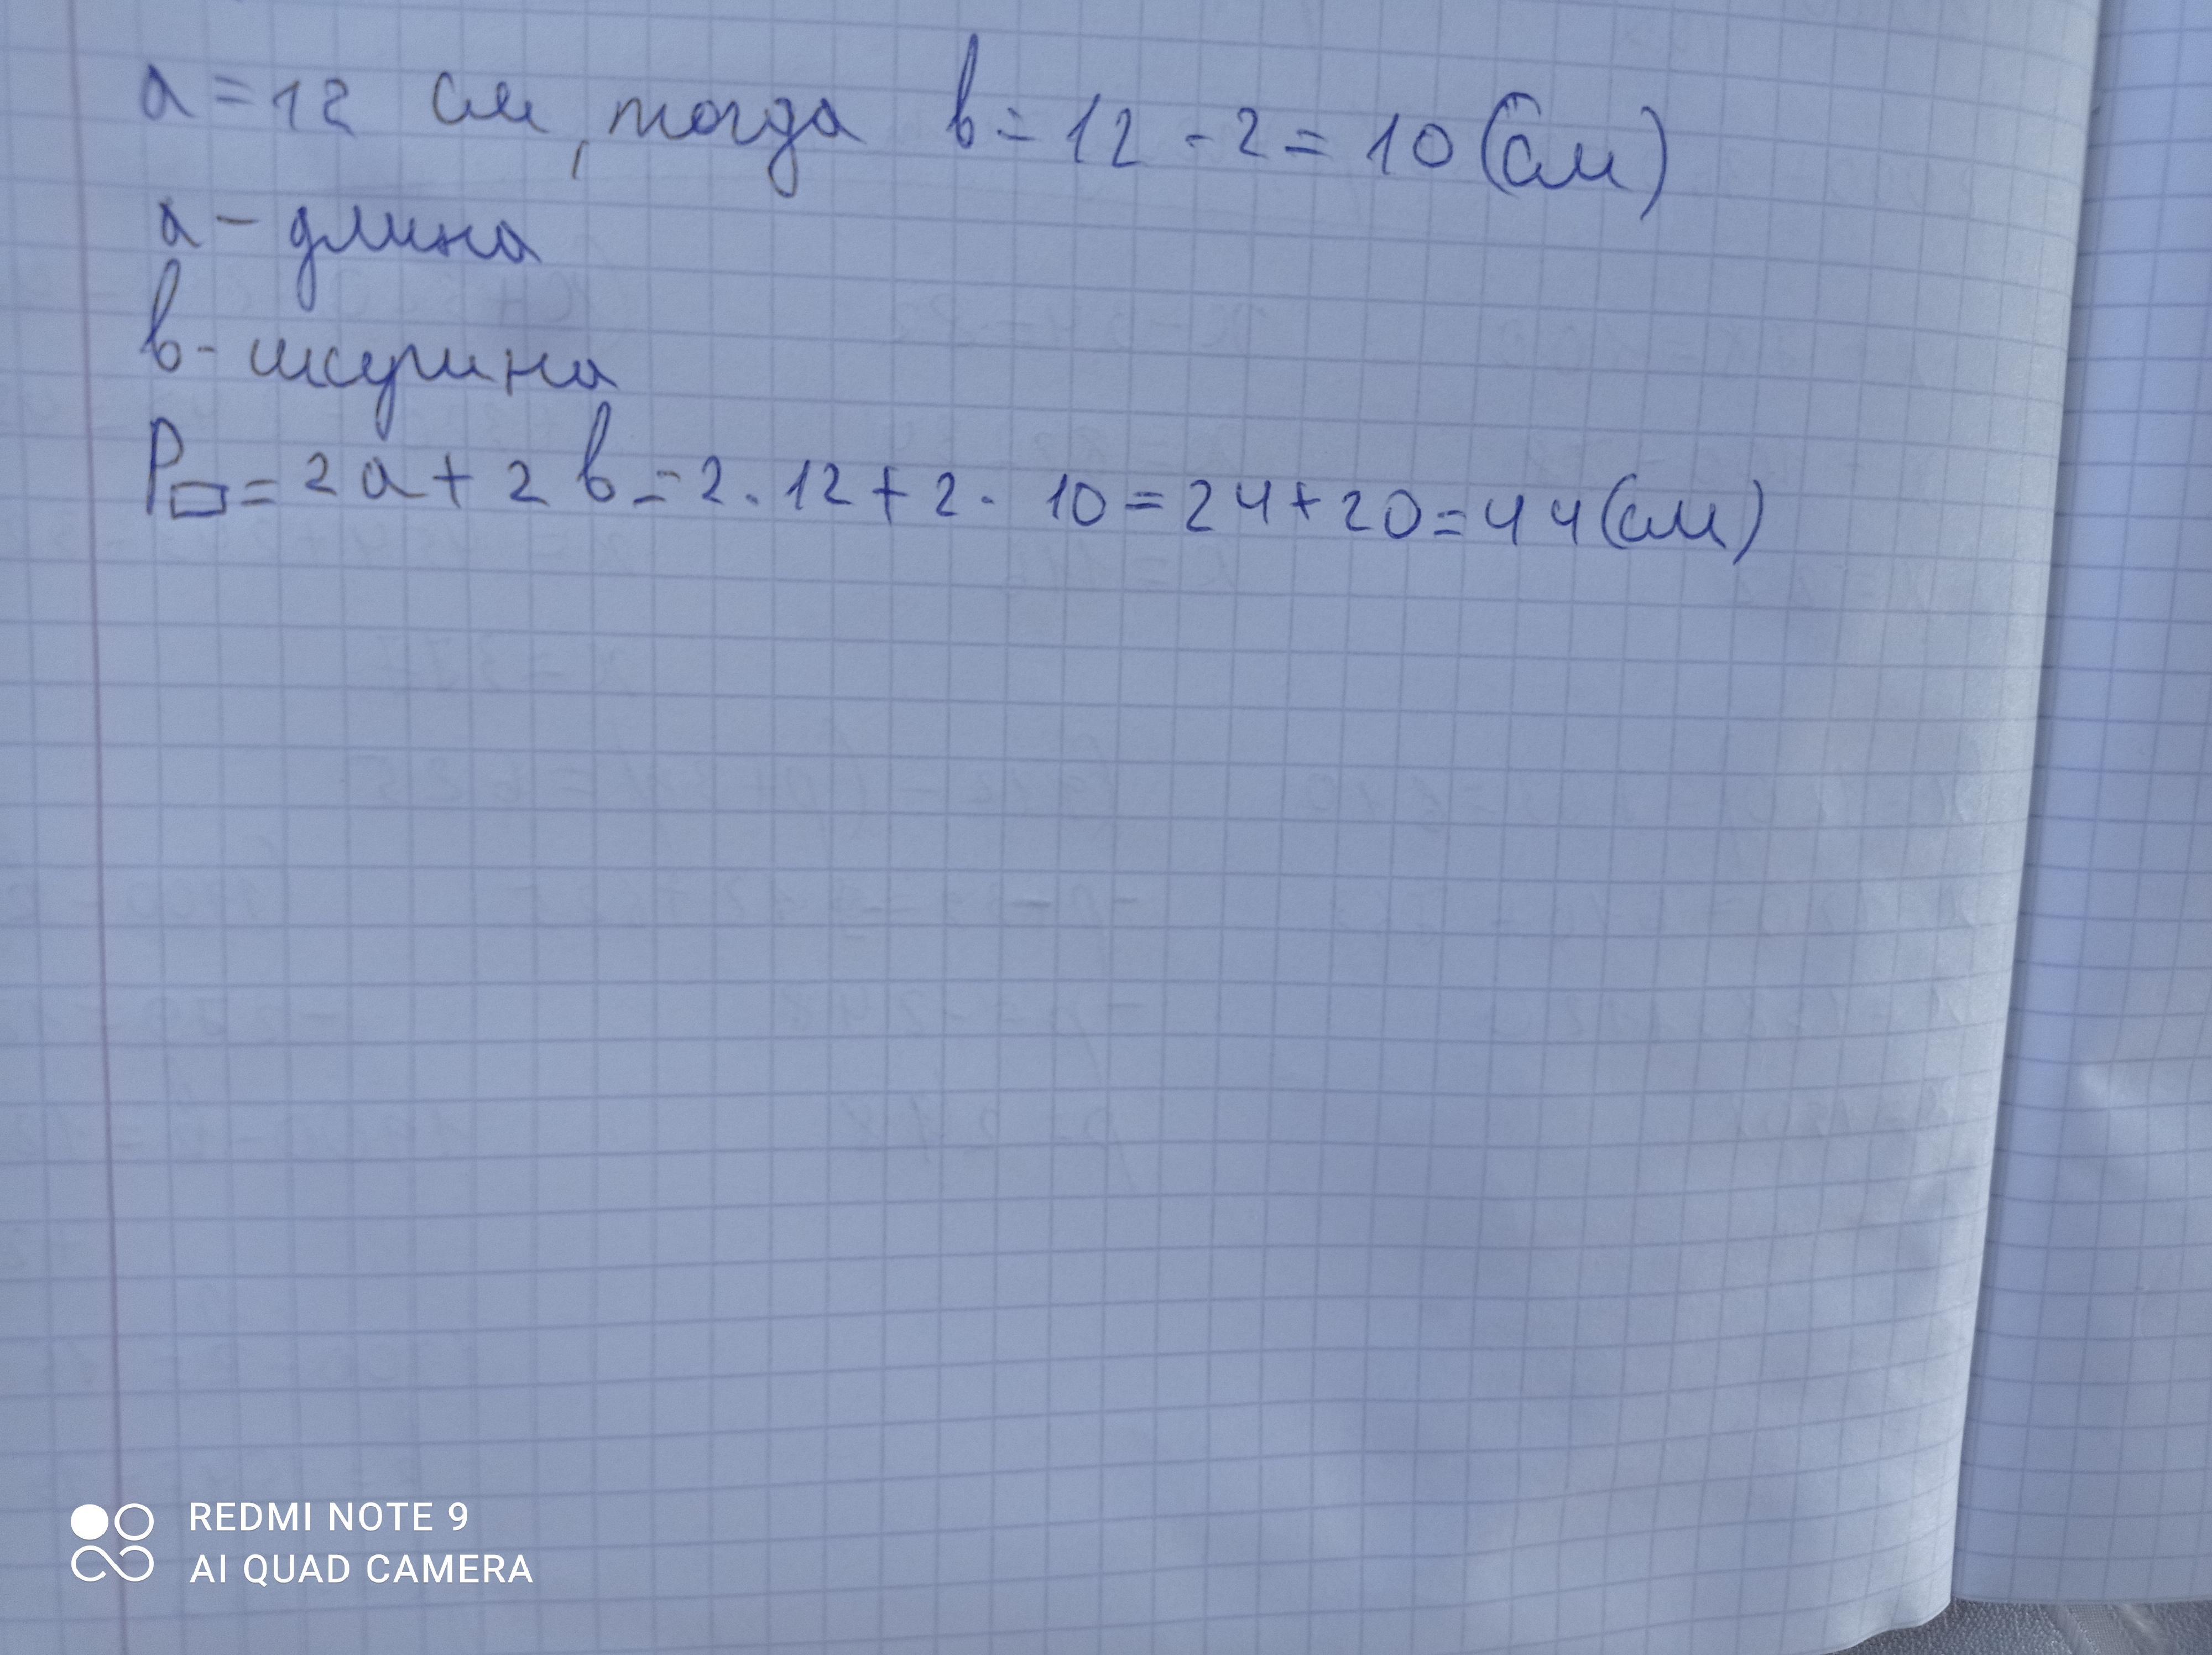 a = 12 см, тогда b = 12 - 2 = 10 (см)
a - длина
b - ширина
P▭ = 2a + 2b = 2 · 12 + 2 · 10 = 24 + 20 = 44 (см)
REDMI NOTE 9
AI QUAD CAMERA